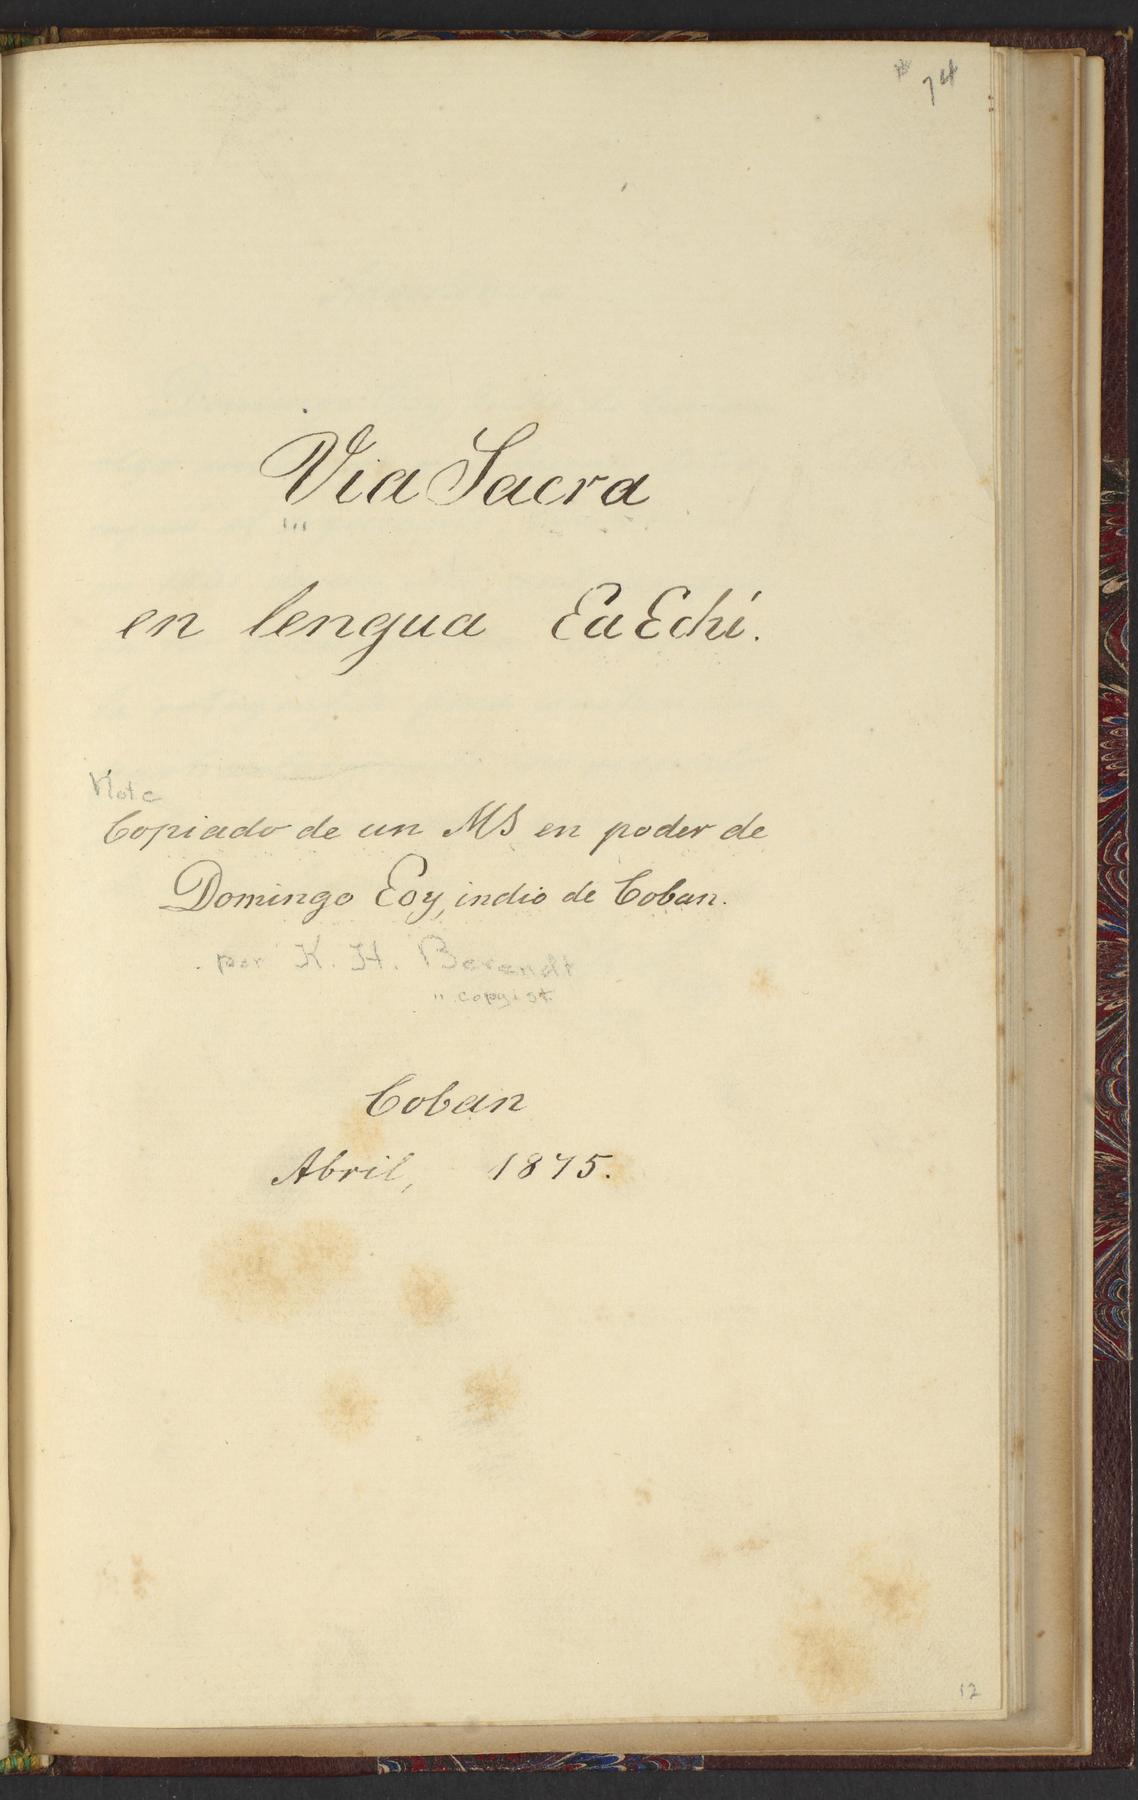 # 74
Via Sacra
en lengua ƐaƐchí.
Note
Copiado de un MS en poder de
Domingo Ɛoy, indio de Coban.
por K. H. Berendt
" copyist
Coban
Abril, 1875.
12